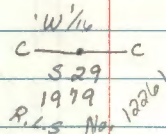 'W' 1/16
C C
S 29
1979
R.L.S No. 12261